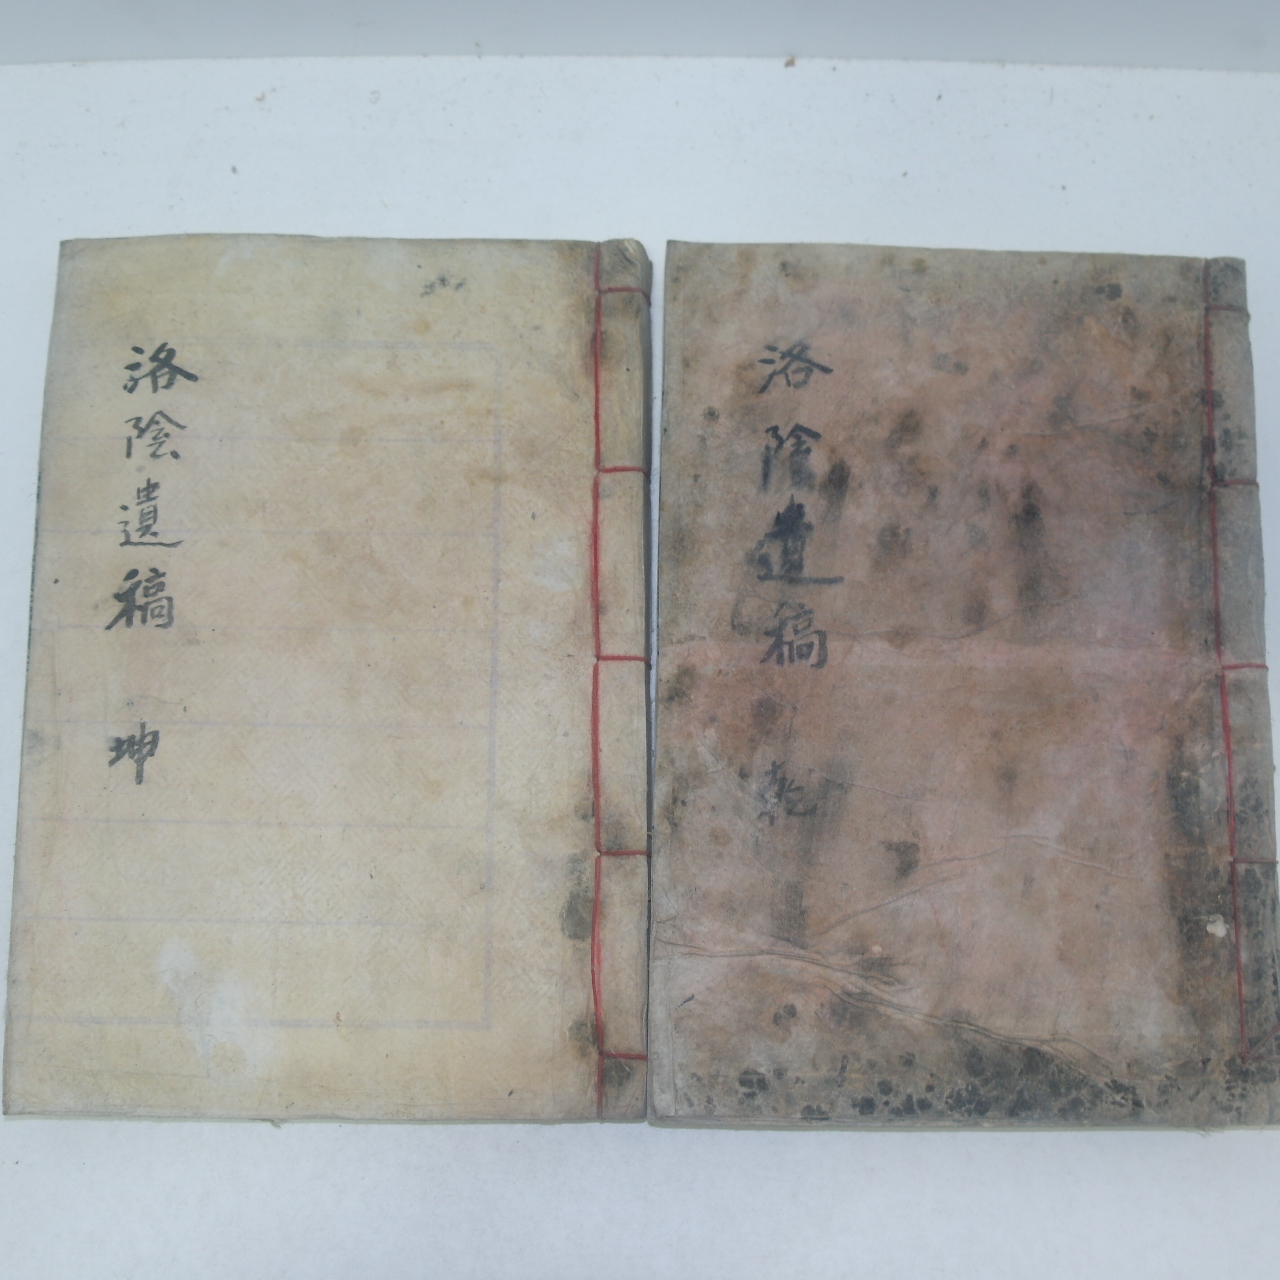 洛陰遺稿 乾
洛陰遺稿 坤